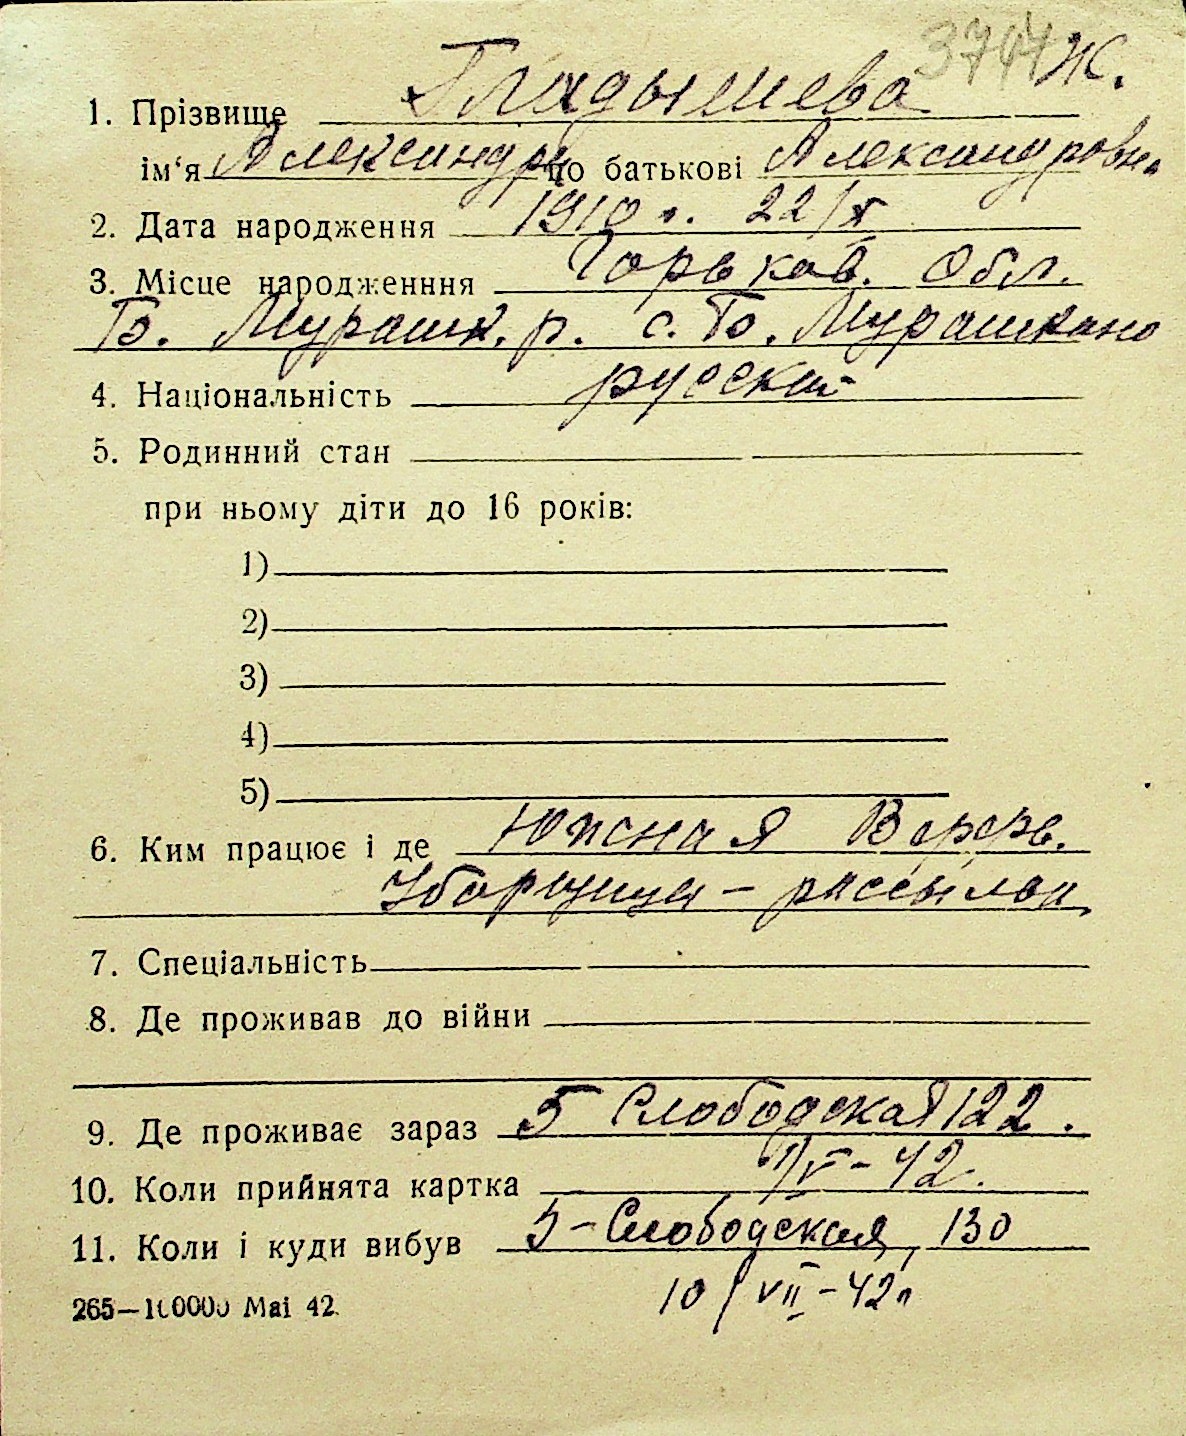 3744 Ж.
1. Прізвище Гладышева
ім'я Александра по батькові Александровна
2. Дата народження 1910 г. 22/X
3. Місце народженння Горьков. обл.
Б. Мурашк. р. с. Б. Мурашкино
4. Національність русская
5. Родинний стан
при ньому діти до 16 років:
1)
2)
3)
4)
5)
6. Ким працює і де Южная Верфь.
Уборщица – рассыльн.
7. Спеціальність
8. Де проживав до війни
9. Де проживає зараз 5 Слободская 122.
10. Коли прийнята картка V – 42.
11. Коли і куди вибув 5 – Слободская, 130
265—100000 Mai 42. 10/VII – 42 г.